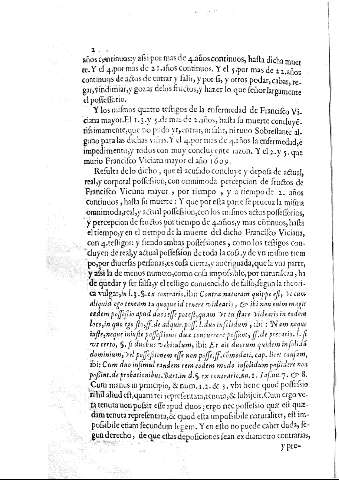 2
años continuos; y assi por mas de 4. años continuos, hasta dicha muerte. Y el 4. por mas de 21. años continuos. Y el 5. por mas de 22. años
continuos de actos de entrar y salir, y por si, y otros podar, cabar, regar, vindimiar, y gozar de los fructos, y hazer lo que señor largamente
el possessorio.
Y los mismos quatro testigos de la enfermedad de Francisco Viciana mayor. El 1. 3. y 5. de mas de 2. años, hasta su muerte concluyẽ
no pudo yr, entrar, ni salir, ni tuuo Sobrestante alguno para las dichas viñas. Y el 4. por mas de 4. años la enfermedad, è
impedimento, y todos con muy concluyente razon. Y el 2. y 5. que
murio Francisco Viciana mayor el año 1609.
Resulta de lo dicho, que el acusado concluye y depossa de actual,
real, y corporal possession, con omnimoda percepcion de fructos de
Francisco Viciana mayor, por tiempo, y a tiempo de 21. años
continuos, hasta su muerte: Y que por esta parte se prueua la misma
omnimoda, real, y actual possession, con los mismos actos possessorios,
y percepcion de fructos por tiempo de 4. años, y mas continuos, hasta
el tiempo, y en el tiempo de la muerte del dicho Francisco Viciana,
con 4. testigos: y siendo ambas possessiones, como los testigos concluyen de real, y actual possession de toda la cosa, y de vn mismo tiempo, por diuersas personas, es cosa cierta, y aueriguada, que la vna parte,
y assi la de menos numero, como cosa impossible, por naturaleza, ha
de quedar y ser falsa, y el testigo conuencido de falso, segun la theorica vulgar, in l. 3. §. ex contrario, ibi: Contra naturam quippe est, vt cum
aliquid ego teneam tu quoque id tenere videaris, & ibi non enim magis
eadem possessio apud duos esse potest, quam vt tu stare videaris in eodem
loco, in quo ego sto, ff. de adquir. poss. l. duo in solidum, ibi: Nam neque
iuste, neque iniuste possessiones duæ concurrere possunt, ff. de precario. l. si
vt certo, §. si duobus vehiculum, ibi: Et ait duorum quidem in solidũ
dominium, vel possessionem esse non posse, ff. commodati, cap. licet causam,
ibi: Cum duo insimul eandem rem eodem modo insolidum possidere non
possint, de probationibus.
Cum manus in principio, & num. 12. & 3. vbi bene quod possessio
nihil aliud est, quam rei repræsentata, tenuta, & subijcit. Cum ergo vera tenuta non possit esse apud duos; ergo nec possessio quæ est quædam insistentia, repræsentata, & quod esta impossibile naturaliter, est impossibile etiam secundum legem. Y en esto no puede caber duda, segun derecho, de que estas deposiciones sean ex diametro contrarias,
y pro-